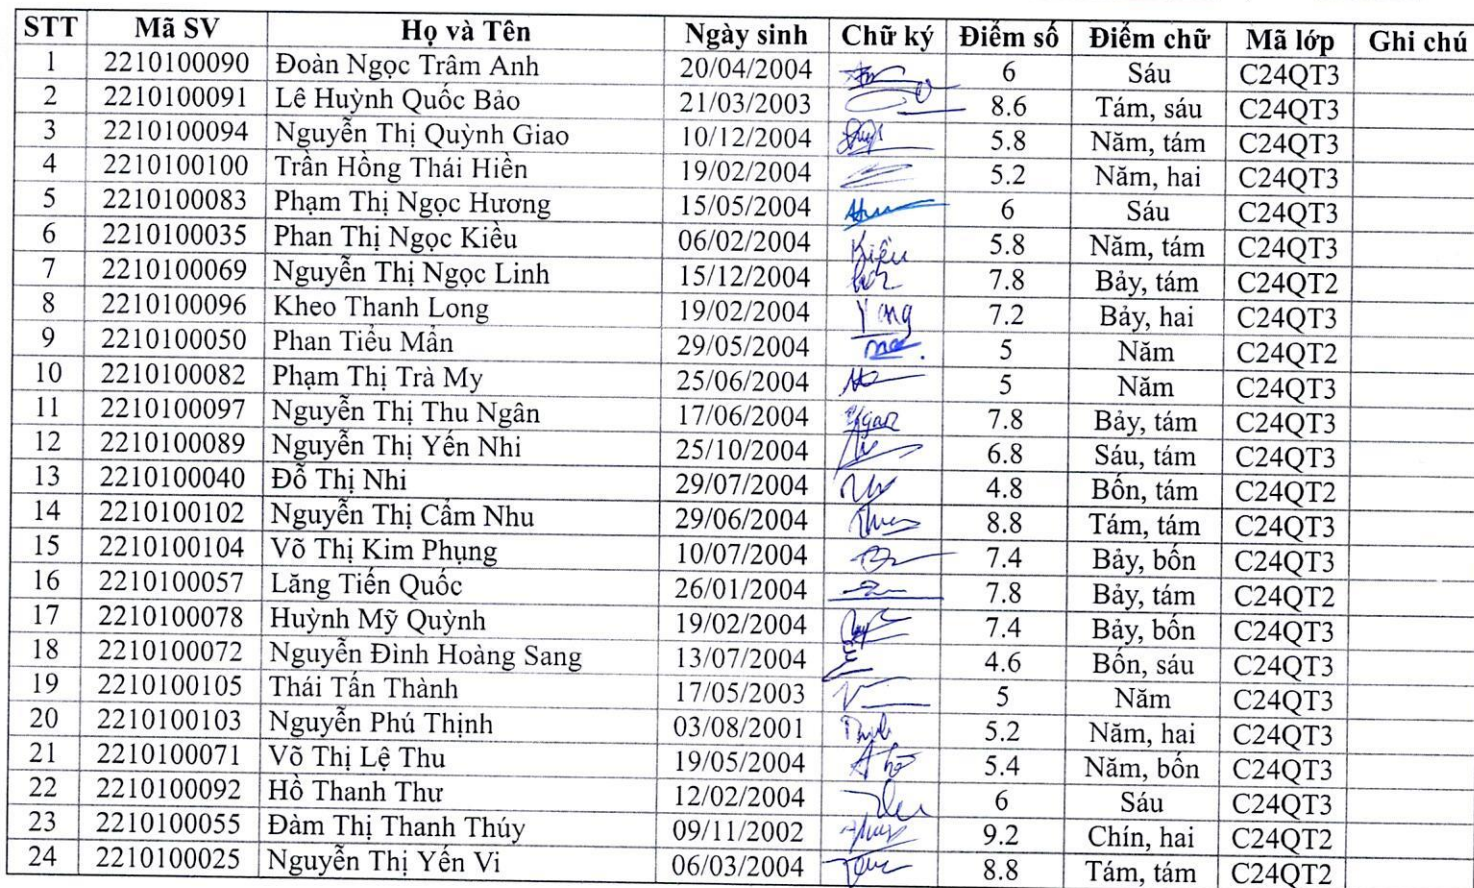 STT Mã SV Họ và Tên Ngày sinh Chữ ký Điểm số Điểm chữ Mã lớp Ghi chú
1 2210100090 Đoàn Ngọc Trâm Anh 20/04/2004 6 Sáu C24QT3
2 2210100091 Lê Huỳnh Quốc Bảo 21/03/2003 8.6 Tám, sáu C24QT3
3 2210100094 Nguyễn Thị Quỳnh Giao 10/12/2004 5.8 Năm, tám C24QT3
4 2210100100 Trần Hồng Thái Hiền 19/02/2004 5.2 Năm, hai C24QT3
5 2210100083 Phạm Thị Ngọc Hương 15/05/2004 6 Sáu C24QT3
6 2210100035 Phan Thị Ngọc Kiều 06/02/2004 Kiều 5.8 Năm, tám C24QT3
7 2210100069 Nguyễn Thị Ngọc Linh 15/12/2004 7.8 Bảy, tám C24QT2
8 2210100096 Kheo Thanh Long 19/02/2004 7.2 Bảy, hai C24QT3
9 2210100050 Phan Tiểu Mẩn 29/05/2004 5 Năm C24QT2
10 2210100082 Phạm Thị Trà My 25/06/2004 5 Năm C24QT3
11 2210100097 Nguyễn Thị Thu Ngân 17/06/2004 7.8 Bảy, tám C24QT3
12 2210100089 Nguyễn Thị Yến Nhi 25/10/2004 6.8 Sáu, tám C24QT3
13 2210100040 Đỗ Thị Nhi 29/07/2004 4.8 Bốn, tám C24QT2
14 2210100102 Nguyễn Thị Cẩm Nhu 29/06/2004 8.8 Tám, tám C24QT3
15 2210100104 Võ Thị Kim Phụng 10/07/2004 7.4 Bảy, bốn C24QT3
16 2210100057 Lăng Tiến Quốc 26/01/2004 7.8 Bảy, tám C24QT2
17 2210100078 Huỳnh Mỹ Quỳnh 19/02/2004 7.4 Bảy, bốn C24QT3
18 2210100072 Nguyễn Đình Hoàng Sang 13/07/2004 4.6 Bốn, sáu C24QT3
19 2210100105 Thái Tấn Thành 17/05/2003 5 Năm C24QT3
20 2210100103 Nguyễn Phú Thịnh 03/08/2001 5.2 Năm, hai C24QT3
21 2210100071 Võ Thị Lệ Thu 19/05/2004 5.4 Năm, bốn C24QT3
22 2210100092 Hồ Thanh Thư 12/02/2004 6 Sáu C24QT3
23 2210100055 Đàm Thị Thanh Thúy 09/11/2002 9.2 Chín, hai C24QT2
24 2210100025 Nguyễn Thị Yến Vi 06/03/2004 8.8 Tám, tám C24QT2